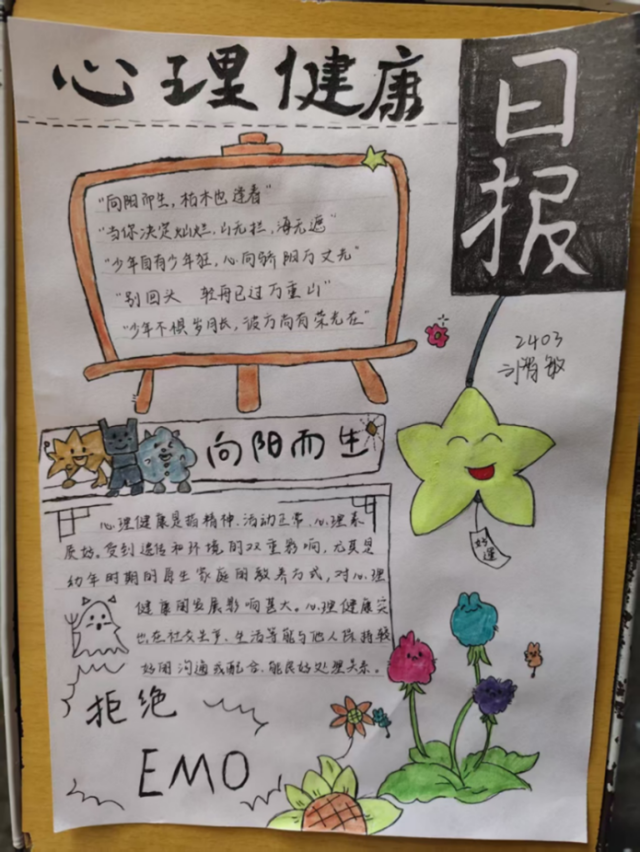 心理健康
日报
"向阳而生,枯木也逢春"
"当你决定灿烂,山无拦,海无遮"
"少年自有少年狂,心向骄阳万丈光"
"别回头 轻舟已过万重山"
"少年不惧岁月长,彼方尚有荣光在"
2403
向阳而生
好运
心理健康是指精神、活动正常、心理素
质好。受到遗传和环境的双重影响,尤其是
幼年时期的原生家庭的教养方式,对心理
健康的发展影响甚大。心理健康突
出在社交上、生活等能与他人保持较
好的沟通或配合、能良好处理关系。
拒绝
EMO